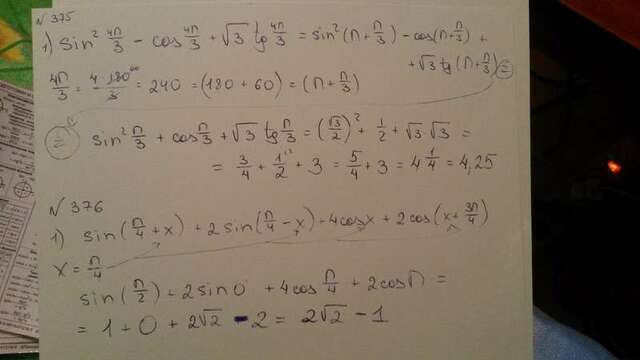 N 375
1) sin² 4π/3 - cos 4π/3 + √3 tg 4π/3 = sin²(π + π/3) - cos(π + π/3) +
+ √3 tg(π + π/3) =
4π/3 = 4·180⁶⁰/3 = 240 = (180 + 60) = (π + π/3)
= sin² π/3 + cos π/3 + √3 tg π/3 = (√3/2)² + 1/2 + √3·√3 =
= 3/4 + 1/2 + 3 = 5/4 + 3 = 4 1/4 = 4,25
N 376
1) sin(π/4 + x) + 2 sin(π/4 - x) - 4cosx + 2 cos(x + 3π/4)
x = π/4
sin(π/2) + 2 sin 0 + 4cos π/4 + 2cos π =
= 1 + 0 + 2√2 - 2 = 2√2 - 1